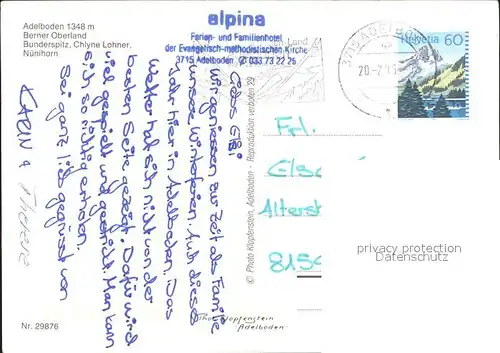 Adelboden 1348 m
Berner Oberland
Bunderspitz, Chlyne Lohner,
Nünihorn
alpina
Ferien- und Familienhotel
der Evangelisch-methodistischen Kirche
3715 Adelboden ✆ 033 73 22 25
3715 ADELBODEN
20.-2.
Helvetia 60
Liebs Elsi
Wir geniessen zur Zeit als Familie
unsere Winterferien. Auch dieses
Jahr hier in Adelboden. Das
Wetter hat sich nicht von der
besten Seite gezeigt. Dafür wird
viel gespielt und gejasst. Man kann
sich so richtig erholen.
Sei ganz lieb gegrüsst von
KARIN &
Therese
© Photo Klopfenstein, Adelboden - Reproduktion verboten 29
Frl.
Alterst
815
privacy protection
Datenschutz
Photo Klopfenstein
Adelboden
Nr. 29876